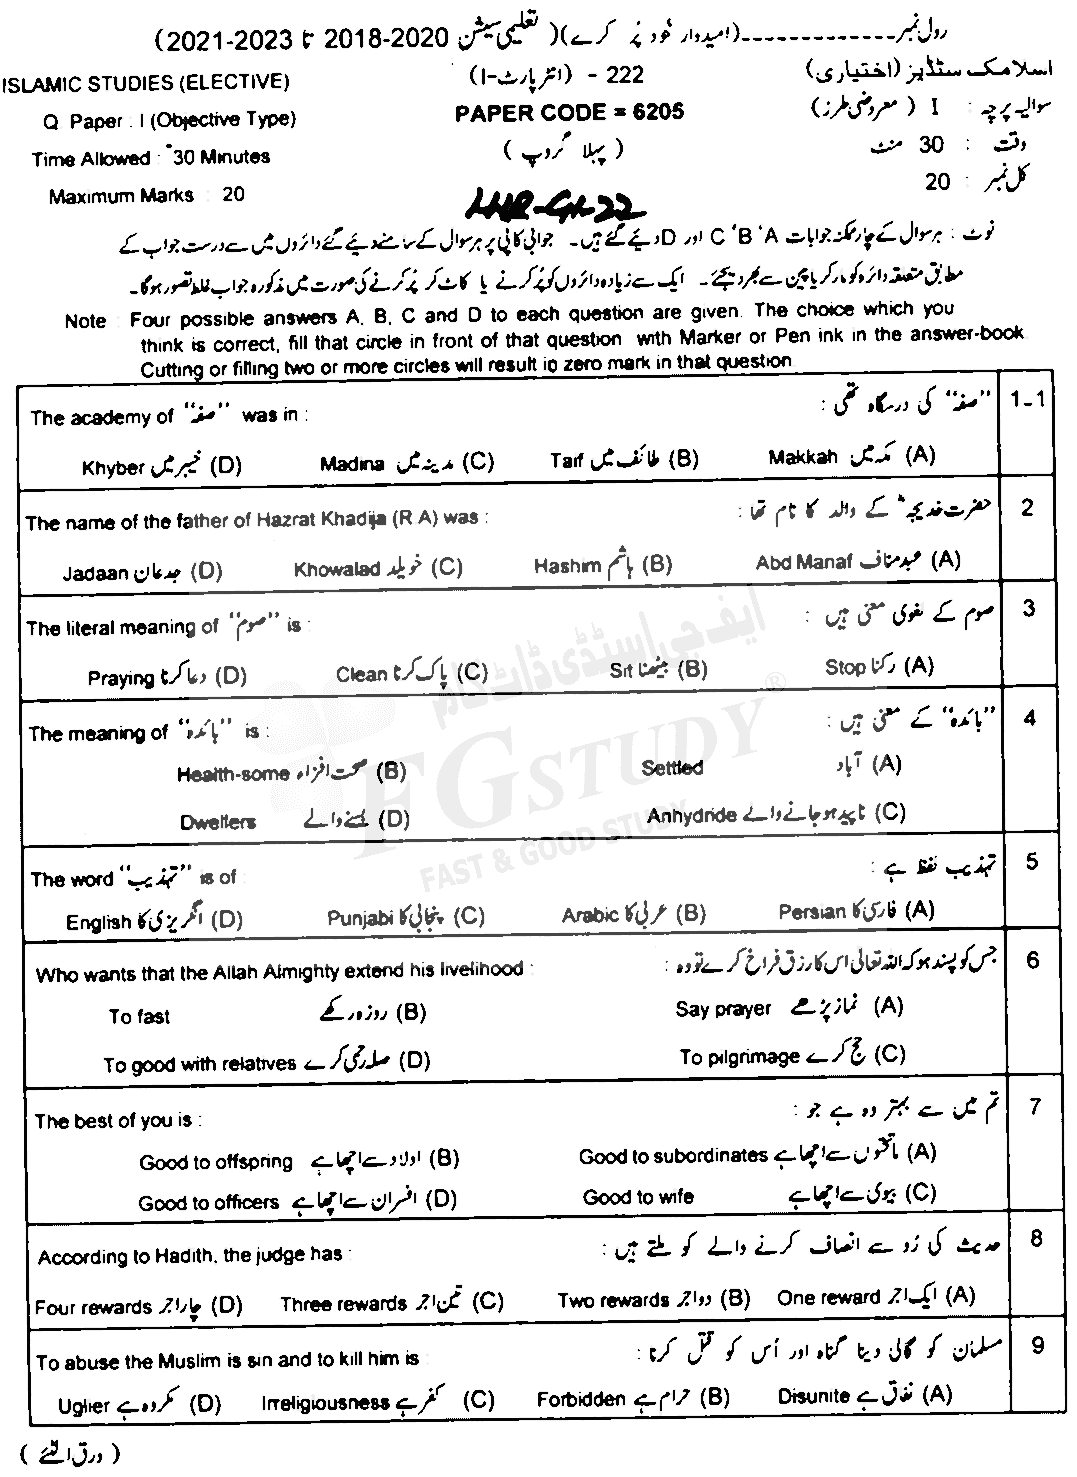 رول نمبر ـ ـ ـ ـ ـ ـ ـ ـ ـ ـ ـ ـ ـ (امیدوار خود پُر کرے)( تعلیمی سیشن 2020-2018 تا 2023-2021)
ISLAMIC STUDIES (ELECTIVE) 222 - (انٹر پارٹ-I) اسلامک سٹڈیز (اختیاری)
Q Paper : I (Objective Type) PAPER CODE = 6205 سوالیہ پرچہ : I ( معروضی طرز)
Time Allowed : 30 Minutes ( پہلا گروپ ) وقت : 30 منٹ
Maximum Marks : 20 LHR-G1-22 کل نمبر : 20
نوٹ : ہر سوال کے چار ممکنہ جوابات A ' B ' C اور D دیئے گئے ہیں۔ جوابی کاپی پر ہر سوال کے سامنے دیئے گئے دائروں میں سے درست جواب کے
مطابق متعلقہ دائرہ کو مارکر یا پین سے بھر دیجئے۔ ایک سے زیادہ دائروں کو پُر کرنے یا کاٹ کر پُر کرنے کی صورت میں مذکورہ جواب غلط تصور ہوگا۔
Note : Four possible answers A, B, C and D to each question are given. The choice which you
think is correct, fill that circle in front of that question with Marker or Pen ink in the answer-book
Cutting or filling two or more circles will result in zero mark in that question
The academy of "صفہ" was in : "صفہ" کی درسگاہ تھی : 1-1
Khyber خیبر میں (D) Madina مدینہ میں (C) Taif طائف میں (B) Makkah مکہ میں (A)
The name of the father of Hazrat Khadija (R A) was : حضرت خدیجہؓ کے والد کا نام تھا : 2
Jadaan جدعان (D) Khowalad خویلد (C) Hashim ہاشم (B) Abd Manaf عبد مناف (A)
The literal meaning of "صوم" is : صوم کے لغوی معنی ہیں : 3
Praying دعا کرنا (D) Clean پاک کرنا (C) Sit بیٹھنا (B) Stop رکنا (A)
The meaning of "بائدہ" is : "بائدہ" کے معنی ہیں : 4
Health-some صحت افزاء (B) Settled آباد (A)
Dwellers بسنے والے (D) Anhydride ناپید ہو جانے والے (C)
The word "تہذیب" is of تہذیب لفظ ہے : 5
English انگریزی کا (D) Punjabi پنجابی کا (C) Arabic عربی کا (B) Persian فارسی کا (A)
Who wants that the Allah Almighty extend his livelihood : جس کو پسند ہو کہ اللہ تعالیٰ اس کا رزق فراخ کرے تو وہ : 6
To fast روزہ رکھے (B) Say prayer نماز پڑھے (A)
To good with relatives صلہ رحمی کرے (D) To pilgrimage حج کرے (C)
The best of you is : تم میں سے بہتر وہ ہے جو : 7
Good to offspring اولاد سے اچھا ہے (B) Good to subordinates ماتحتوں سے اچھا ہے (A)
Good to officers افسران سے اچھا ہے (D) Good to wife بیوی سے اچھا ہے (C)
According to Hadith, the judge has : حدیث کی رُو سے انصاف کرنے والے کو ملتے ہیں : 8
Four rewards چار اجر (D) Three rewards تین اجر (C) Two rewards دو اجر (B) One reward ایک اجر (A)
To abuse the Muslim is sin and to kill him is : مسلمان کو گالی دینا گناہ اور اُس کو قتل کرنا : 9
Uglier مکروہ ہے (D) Irreligiousness کفر ہے (C) Forbidden حرام ہے (B) Disunite نفاق ہے (A)
( ورق الٹئے )
ایف جی اسٹڈی ڈاٹ کام
FG STUDY ®
FAST & GOOD STUDY